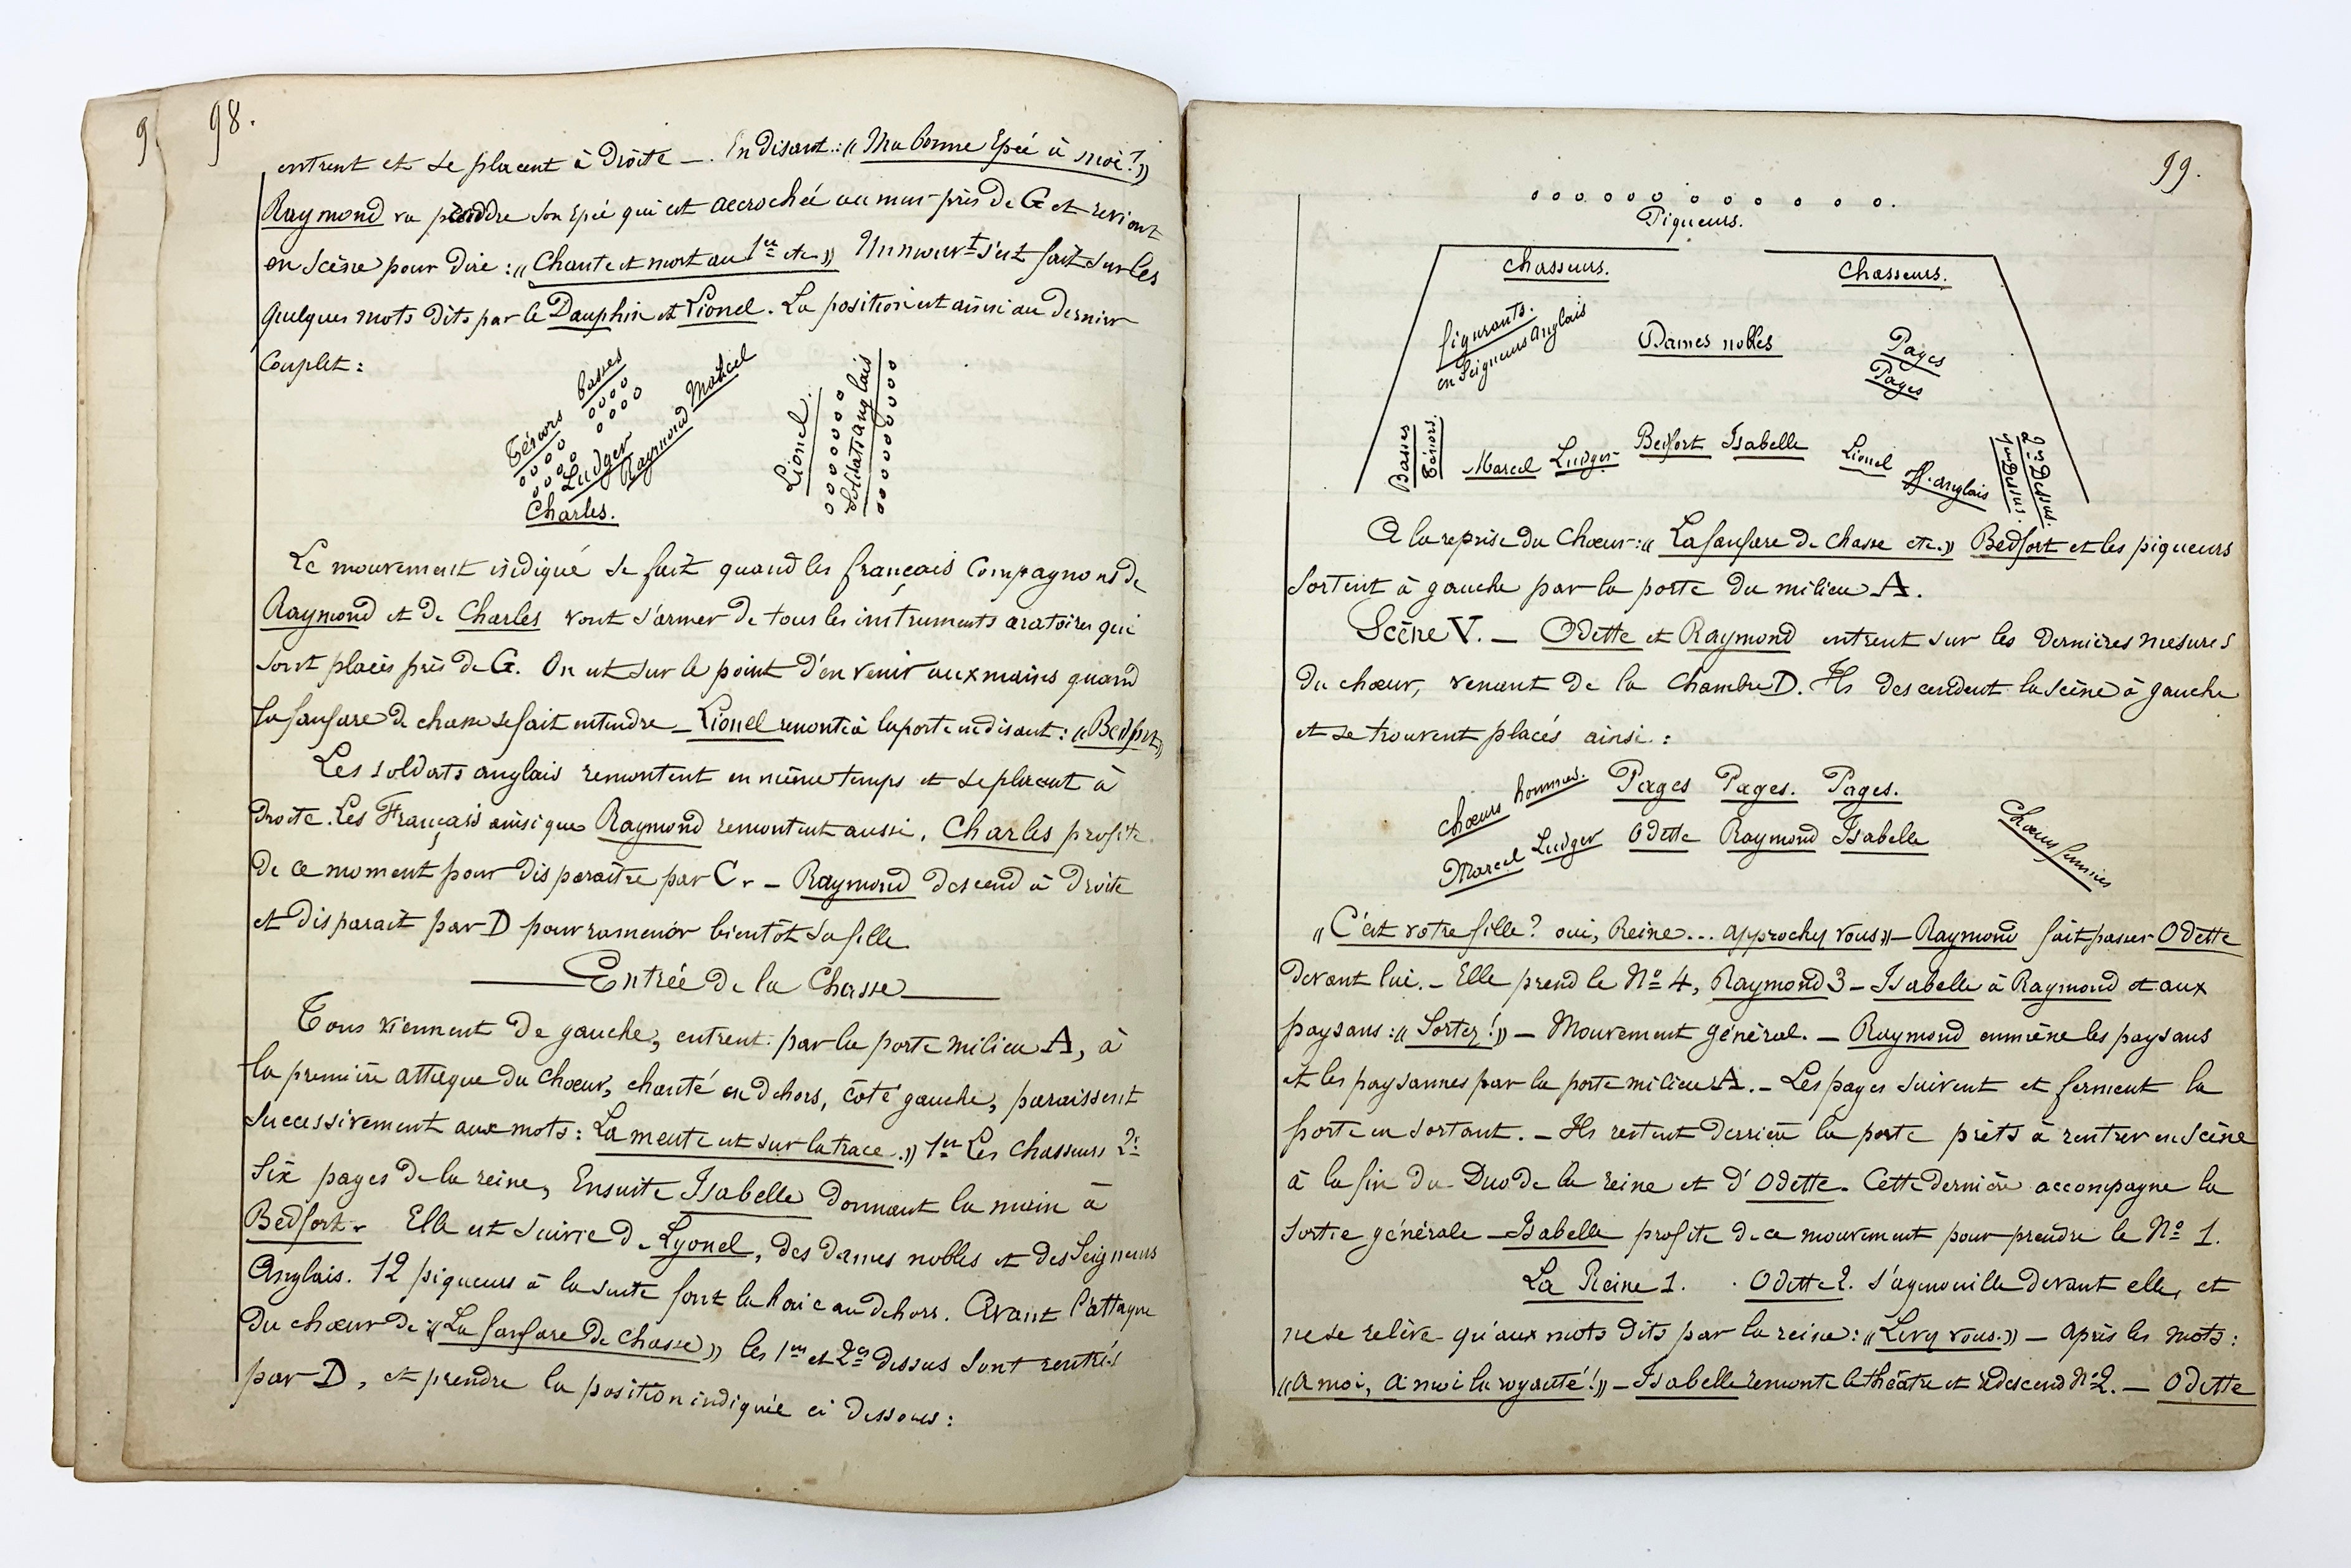 9
98.
entrent et se placent à Droite —. En disant : « Ma bonne Epée à moi ! »
Raymond va prendre son épée qui est accrochée au mur près de G et revient
en Scène pour dire : « Chante et mort au 1er etc » Un mouvt s'est fait sur les
quelques mots dits par le Dauphin et Lionel. La position est ainsi au dernier
Couplet :
Ténors basses
Ludger Raymond Marcel
Charles.
Lionel.
Soldats anglais
Le mouvement indiqué se fait quand les français Compagnons de
Raymond et de Charles vont s'armer de tous les instruments aratoires qui
sont placés près de G. On est sur le point d'en venir aux mains quand
la fanfare de chasse se fait entendre — Lionel remonte à la porte en disant : « Bedfort »
Les soldats anglais remontent en même temps et se placent à
Droite. Les Français ainsi que Raymond remontent aussi. Charles profite
de ce moment pour disparaître par C. — Raymond descend à Droite
et disparait par D pour ramener bientôt sa fille
Entrée de la Chasse
Tous viennent de gauche, entrent par la porte milieu A, à
la première attaque du Chœur, chanté en dehors, côté gauche, paraissent
successivement aux mots : La meute est sur la trace. » 1er Les Chasseurs 2:
Six pages de la reine, Ensuite Isabelle donnant la main à
Bedfort. Elle est suivie de Lyonel, des dames nobles et des Seigneurs
Anglais. 12 piqueurs à la suite font la haie au dehors. Avant l'attaque
du chœur de « La fanfare de Chasse » les 1ers et 2es dessus sont rentrés
par D, et prendre la position indiquée ci dessous :
99.
Piqueurs.
Chasseurs. Chasseurs.
figurants. en Seigneurs Anglais
Dames nobles
Pages
Pages
Basses
Ténors.
Marcel Ludger Bedfort Isabelle Lionel Off. anglais
1ers Dessus.
2es Dessus.
A la reprise du Chœur : « La fanfare de Chasse etc. » Bedfort et les piqueurs
sortent à gauche par la porte du milieu A.
Scène V. — Odette et Raymond entrent sur les dernières mesures
du chœur, venant de la chambre D. Ils descendent la scène à gauche
et se trouvent placés ainsi :
Chœurs hommes. Pages Pages. Pages.
Marcel Ludger Odette Raymond Isabelle
Chœurs femmes
« C'est votre fille ? oui, Reine... approchez vous » — Raymond fait passer Odette
devant lui. — Elle prend le No 4, Raymond 3 — Isabelle à Raymond et aux
paysans : « Sortez ! » — Mouvement général. — Raymond emmène les paysans
et les paysannes par la porte milieu A. — Les pages suivent et ferment la
porte en sortant. — Ils restent derrière la porte prêts à rentrer en Scène
à la fin du Duo de la reine et d'Odette. Cette dernière accompagne la
sortie générale — Isabelle profite de ce mouvement pour prendre le No 1.
La Reine 1. Odette 2. s'agenouille devant elle, et
ne se relève qu'aux mots dits par la reine : « Levez vous. » — après les mots :
« a moi, a moi la royauté ! » — Isabelle remonte le théâtre et redescend No 2. — Odette